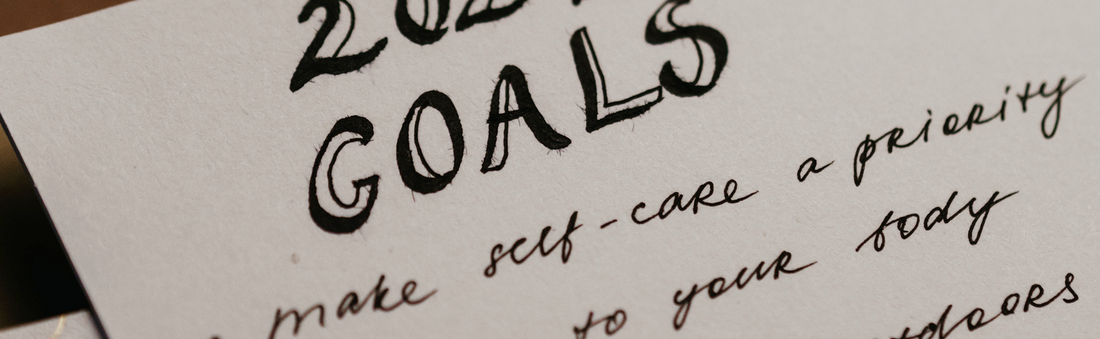 GOALS
make self-care a priority
to your body